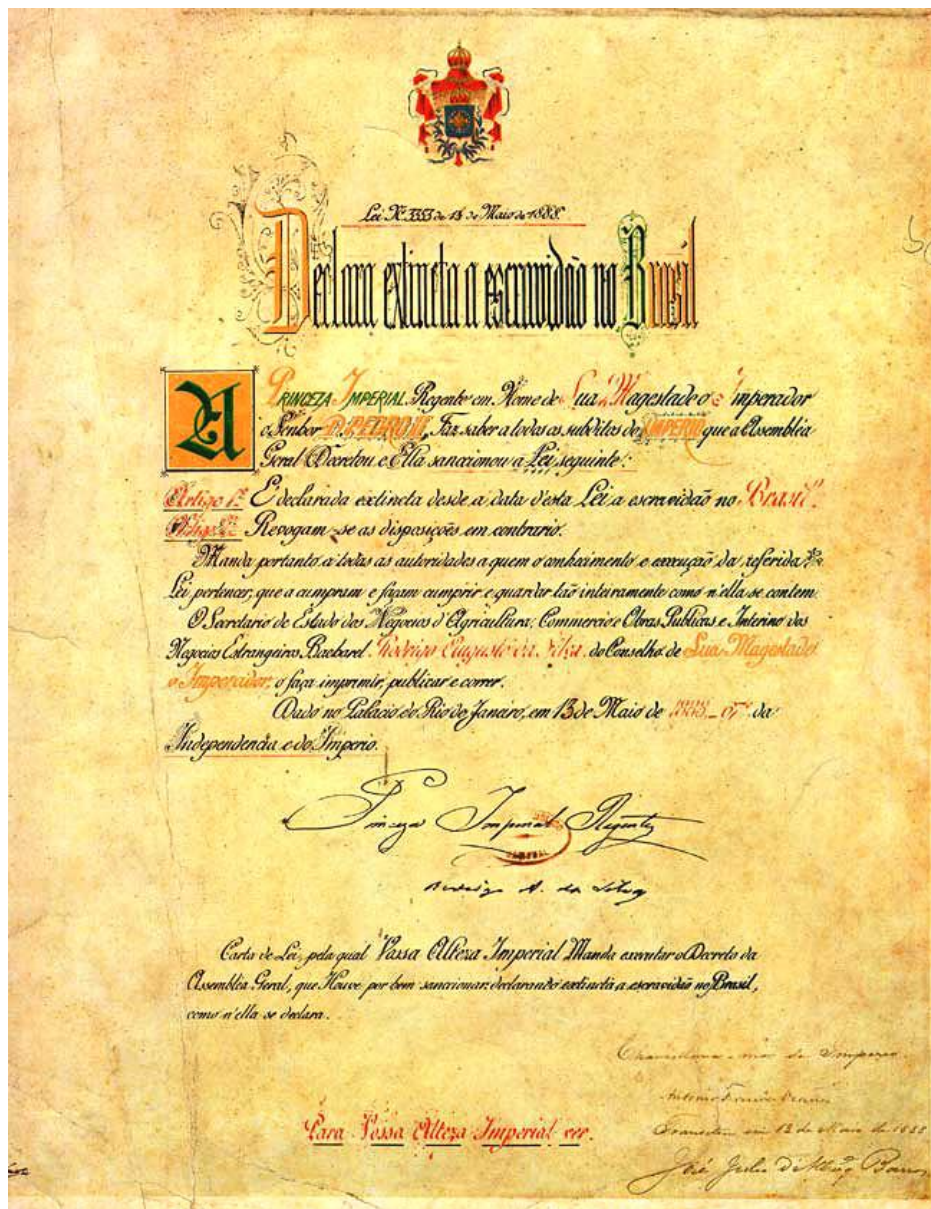 Lei Nº 3353 de 13 de Maio de 1888
Declara extincta a escravidão no Brasil
A PRINCEZA IMPERIAL Regente em Nome de Sua Magestade o Imperador
o Senhor D. PEDRO II, Faz saber a todos os subditos do IMPERIO que a Assembléa
Geral Decretou e Ella sanccionou a Lei seguinte:
Artigo 1º É declarada extincta desde a data d'esta Lei a escravidão no Brasil.
Artigo 2º Revogam-se as disposições em contrario.
Manda portanto a todas as autoridades a quem o conhecimento e execução da referida
Lei pertencer, que a cumpram e façam cumprir e guardar tão inteiramente como n'ella se contem.
O Secretario de Estado dos Negocios d'Agricultura, Commercio e Obras Publicas e Interino dos
Negocios Estrangeiros Bacharel Rodrigo Augusto da Silva do Conselho de Sua Magestade
o Imperador, o faça imprimir, publicar e correr.
Dado no Palacio do Rio de Janeiro, em 13 de Maio de 1888_67º da
Independencia e do Imperio.
Princeza Imperial Regente
Rodrigo A. da Silva
Carta de Lei, pela qual Vossa Alteza Imperial Manda executar o Decreto da
Assembléa Geral, que Houve por bem sanccionar declarando extincta a escravidão no Brasil,
como n'ella se declara.
Chancellaria-mór do Imperio.
Antonio Ferreira Vianna
Para Vossa Alteza Imperial ver.
Transitou em 13 de Maio de 1888
José Julio d'Albuqº Barros